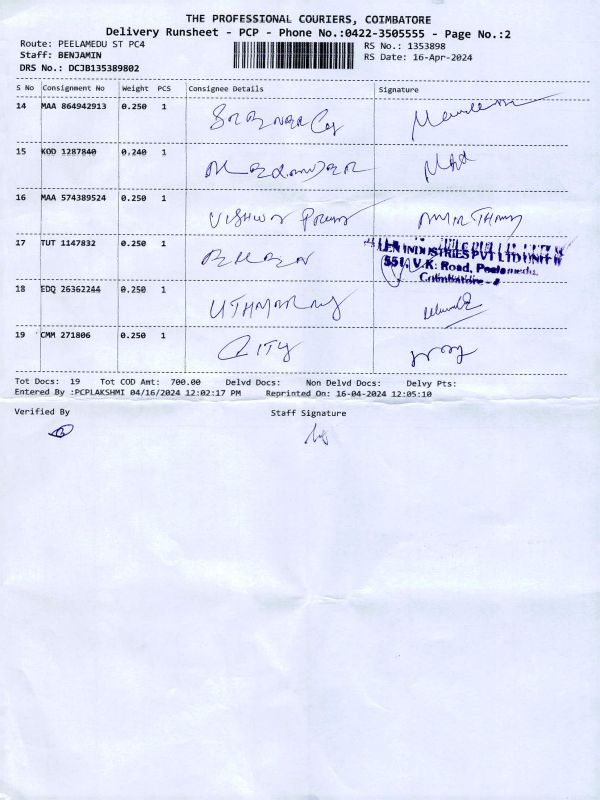 THE PROFESSIONAL COURIERS, COIMBATORE
Delivery Runsheet - PCP - Phone No.:0422-3505555 - Page No.:2
Route: PEELAMEDU ST PC4
RS No.: 1353898
Staff: BENJAMIN
RS Date: 16-Apr-2024
DRS No.: DCJB135389802
S No Consignment No Weight PCS Consignee Details Signature
14 MAA 864942913 0.250 1
15 KOD 1287840 0.240 1
16 MAA 574389524 0.250 1 VISHWA
17 TUT 1147832 0.250 1
INDUSTRIES PVT LTD UNIT
551, V.K. Road, Peelamedu,
Coimbatore - 4
18 EDQ 26362244 0.250 1
19 CMM 271806 0.250 1 CITY
Tot Docs: 19 Tot COD Amt: 700.00 Delvd Docs: Non Delvd Docs: Delvy Pts:
Entered By :PCPLAKSHMI 04/16/2024 12:02:17 PM Reprinted On: 16-04-2024 12:05:10
Verified By Staff Signature